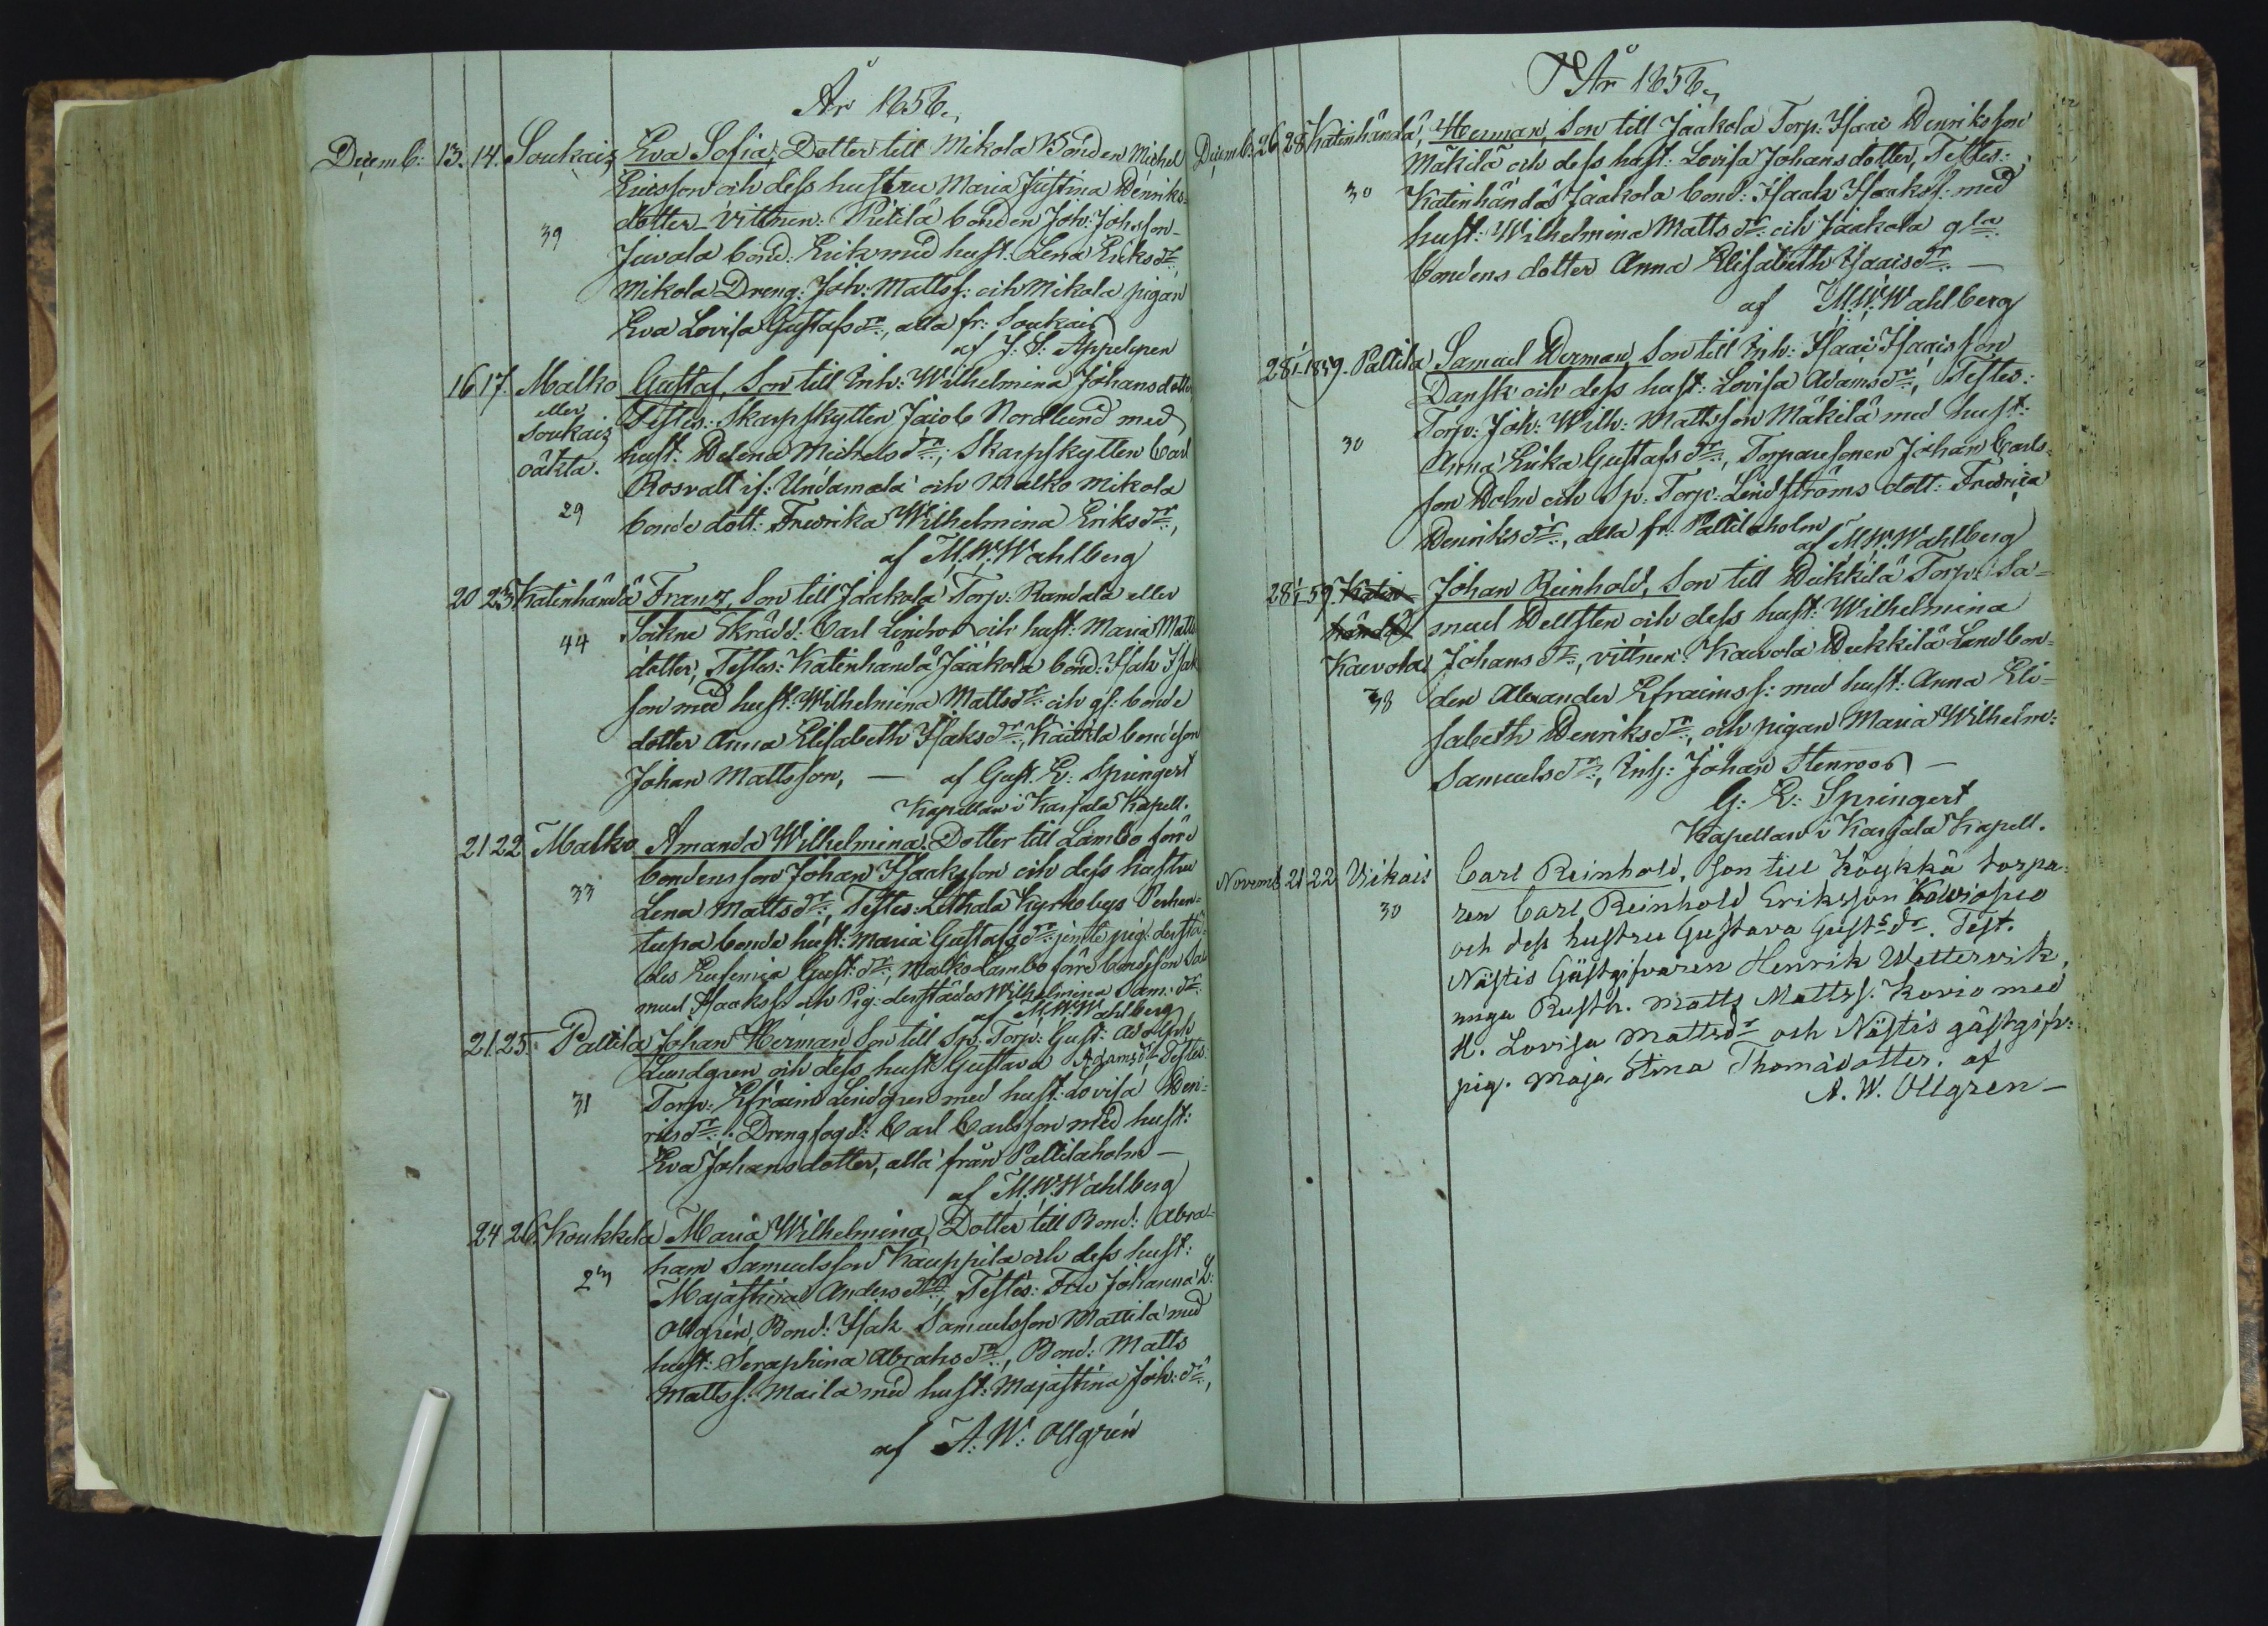 År 1858,
Decemb: 13. 14. Soukais Eva Sofia, Dotter till Mikola Bonden Michel
Ericsson och dess hustru Maria Justina Henriks-
39 dotter. Vittnen: Pietilä bonden Joh: Johsson
Juvala bond: Erik med hust: Lena Eriks dr
Mikola Dreng: Joh: Mattss: och Mikola pigan
Eva Lovisa Gustafs dr, alla fr: Soukais
af J: S: Appelgren
16 17. Malko Gustaf, Son till Inh: Wilhelmina Johansdotter
eller Soukais Testes: Skarpskytten Jacob Nordlund med
oäkta. hust: Helena Michels dr; Skarpskytten Carl
Rosvall if: Undamala och Malko Mikola
29 bonde dott: Fredrika Wilhelmina Eriks dr,
af M. W. Wahlberg
20 23 Katinhändä Franz, Son till Jaakola Torp: Randala eller
44 Sockne Skrädd: Carl Lindroos och hust: Maria Matts
dotter, Testes: Katinhändä Jaakola bond: Isak Isak
son med hust: Wilhelmina Matts dr: och gl: bonde
dotter Anna Elisabeth Isaks dr, Kaitila bondeson
Johan Mattsson, — af Gust. E: Springert
Kapellan i Karjala Kapell.
21 22 Malko Amanda Wilhelmina, Dotter till Lambo förre
bondens son Johan Isaaksson och dess hustru
33 Lena Matts dr, Testes: Lethala Kyrkobys Perhen-
tupa bonde hust: Maria Gustafs dr jemte pig: derstä-
des Eufemia Gust: dr; Malko Lambo förre bondeson Sa
muel Isaakss. och Pig: derstädes Wilhelmina Sam: dr
af M. W. Wahlberg
21. 25. Pallila Johan Herman Son till Sp: Torp: Gust: Adolph
Lundgren och dess hust Gustava Adams dr Testes:
31 Torp: Efraim Lindgren med hust: Lovisa Hen-
rics dr: Drengfogd: Carl Carlsson med hust:
Eva Johansdotter, alla från Pallilaholm —
af M. W. Wahlberg
24 26. Koukkela Maria Wilhelmina, Dotter till Bond: Abra-
ham Samuelsson Kauppila och dess hust:
Majastina Anders dr, Testes: Fru Johanna L:
Ollgrén, Bond: Isak Samuelsson Mattila med
hust: Seraphina Abrahs dr, Bond: Matts
Mattss: Maila med hust: Majastina Joh: dr,
af A: W: Ollgrén
År 1858,
Decemb: 26 28 Katinhändä, Herman, Son till Jaakola Torp: Isaac Henriksson
Mäkilä och dess hust: Lovisa Johansdotter, Testes:
30 Katinhändä Jaakola bond: Isaak Isaakss: med
hust: Wilhelmina Matts dr och Jaakola gla
bondens dotter Anna Elisabeth Isaacs dr. —
af M. W. Wahlberg
28 1/1 1859. Pallila Samuel Herman, Son till Inh: Isaac Isaacsson
Dansk och dess hust: Lovisa Adams dr, Testes:
Torp: Joh: Wilh: Mattsson Mäkilä med hust:
30 Anna Erika Gustafs dr, Torparesonen Johan Carls-
son Holm och Sp: Torp: Lindströms dott: Fredrica
Henriks dr, alla fr: Pallilaholm
af M. W. Wahlberg
28 1/1 59. Katin- Johan Reinhold, Son till Heikkilä Torp: Sa-
händä muel Hellsten och dess hust: Wilhelmina
Kaivola Johans dr, vittnen: Kaivola Heikkilä Landbon-
38 den Alexander Efraimss: med hust: Anna Eli-
sabeth Henriks dr, och pigan Maria Wilhelm:
Samuels dr, Inh: Johan Stenroos —
G: E: Springert
Kapellan i Karjala Kapell.
Novemb 21 22 Vikais Carl Reinhold, Son till Köykkä torpa-
30 ren Carl Reinhold Eriksson
och dess hustru Gustava Gusts dr. Test.
Nästis Gästgifvaren Henrik Wetterwik,
unga Rusth. Matts Mattss. Kovio med
H. Lovisa Mattsdr och Nästis gästgifv:
pig. Maja Stina Thomädotter. af
A. W. Ollgren —